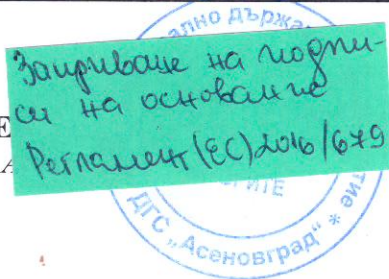 Закриване на подпи-
си на основание
Регламент (ЕС) 2016/679
ДГС „Асеновград"